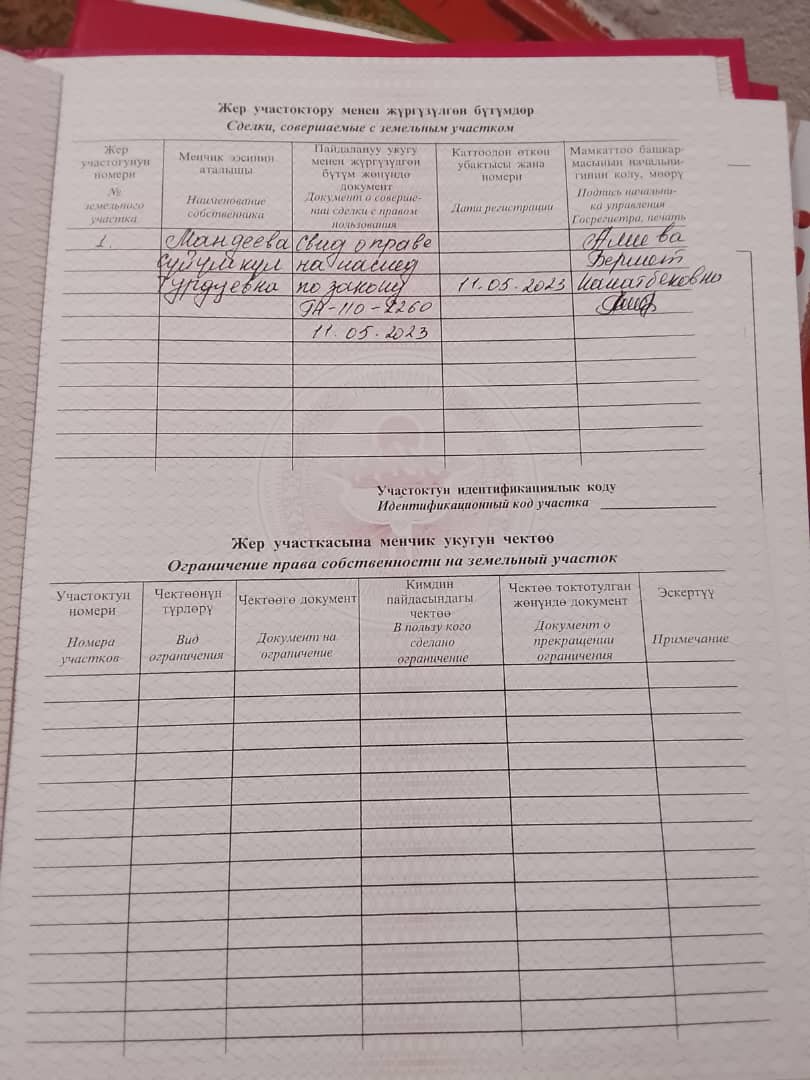 Жер участоктору менен жүргүзүлгөн бүтүмдөр
Сделки, совершаемые с земельным участком
Жер участогунун номери
№ земельного участка
Менчик ээсинин аталышы
Наименование собственника
Пайдалануу укугу менен жүргүзүлгөн бүтүм жөнүндө документ
Документ о совершении сделки с правом пользования
Каттоодон өткөн убактысы жана номери
Дата регистрации
Мамкаттоо башкармасынын начальнигинин колу, мөөрү
Подпись начальника управления Госрегистра, печать
1. Мандеева свид о праве Алиева
Суйумкул на наслед Бермет
Турдуевна по закону 11.05.2023 Канатбековна
ГА-110-2260
11.05.2023
Участоктун идентификациялык коду
Идентификационный код участка
Жер участкасына менчик укугун чектөө
Ограничение права собственности на земельный участок
Участоктун номери
Номера участков
Чектөөнүн түрлөрү
Вид ограничения
Чектөөгө документ
Документ на ограничение
Кимдин пайдасындагы чектөө
В пользу кого сделано ограничение
Чектөө токтотулган жөнүндө документ
Документ о прекращении ограничения
Эскертүү
Примечание